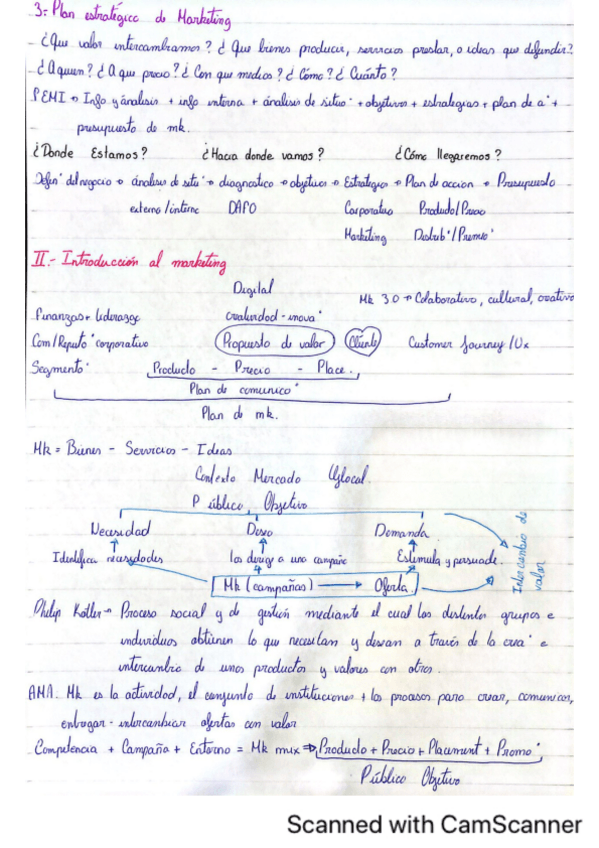 3.- Plan estratégico de Marketing
¿Que valor intercambiamos? ¿Que bienes producir, servicios prestar, o ideas que defender?
¿A quien? ¿A que precio? ¿Con que medios? ¿Cómo? ¿Cuánto?
PEMI → Info y análisis + info interna + análisis de situo° + objetivos + estrategias + plan de a° +
presupuesto de mk.
¿Donde Estamos? ¿Hacia donde vamos? ¿Cómo llegaremos?
Defin° del negocio → análisis de sitú° → diagnostico → objetivos → Estrategias → Plan de acción → Presupuesto
externo/interno DAFO Corporativo Producto/Precio
Marketing Distrib°/Promo°
II.- Introducción al marketing
Digital
Mk 3.0 → Colaborativo, cultural, creativo
Finanzas + liderazgo creatividad - innova°
Com/Reputo° corporativo Propuesta de valor Cliente Customer Journey/Ux
Segmento° Producto - Precio - Place.
Plan de comunico°
Plan de mk.
Mk = Bienes - Servicios - Ideas
Contexto Mercado Glocal.
Público Objetivo
Necesidad Deseo Demanda
Identifica necesidades los dirige a una campaña Estimula y persuade.
Mk (campañas) → Oferta.
Intercambio de valor
Philip Kotler → Proceso social y de gestión mediante el cual los distintos grupos e
individuos obtienen lo que necesitan y desean a través de la crea° e
intercambio de unos productos y valores con otros.
AMA. Mk es la actividad, el conjunto de instituciones + los procesos para crear, comunicar,
entregar - intercambiar ofertas con valor
Competencia + Campaña + Entorno = Mk mix ⇒ Producto + Precio + Placement + Promo°
Público Objetivo
Scanned with CamScanner